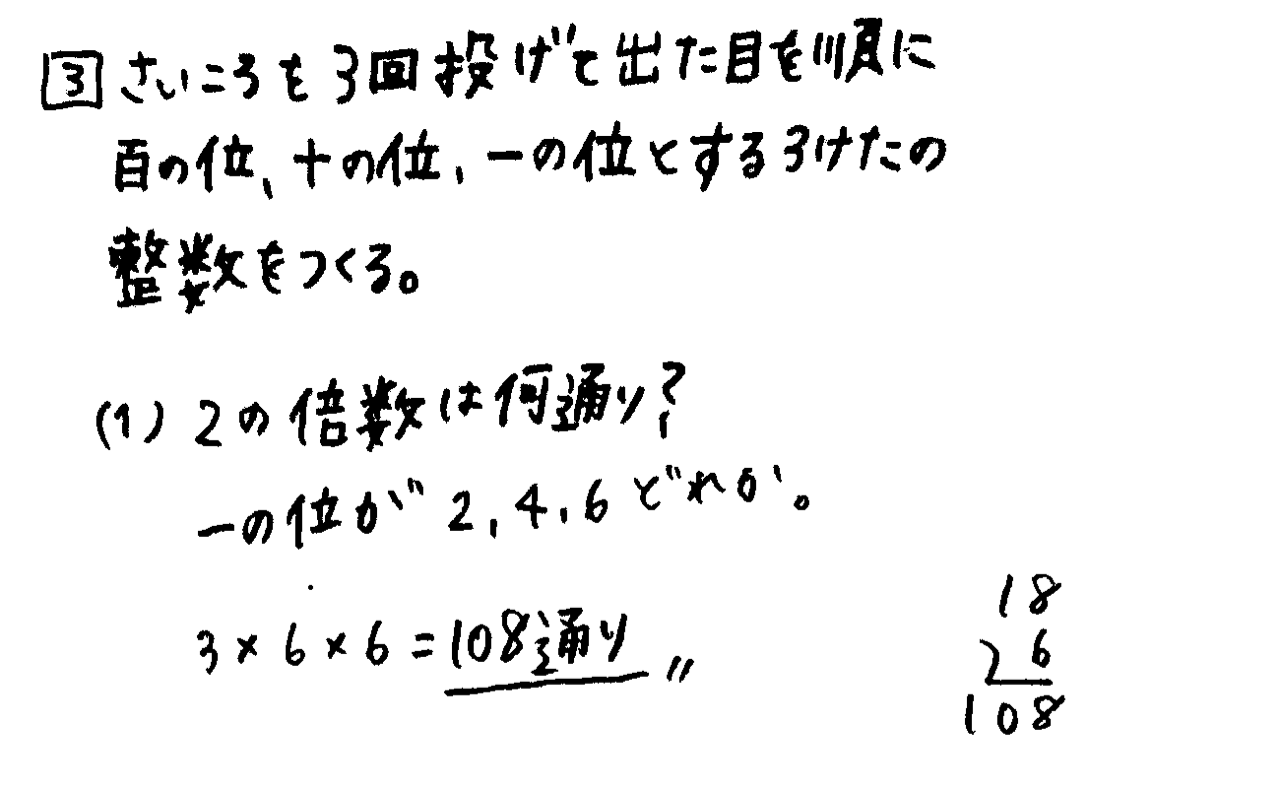 3 さいころを3回投げて出た目を順に
百の位、十の位、一の位とする3けたの
整数をつくる。
(1) 2の倍数は何通り?
一の位が 2, 4, 6 どれか。
3 × 6 × 6 = 108通り 〃
18
6
108